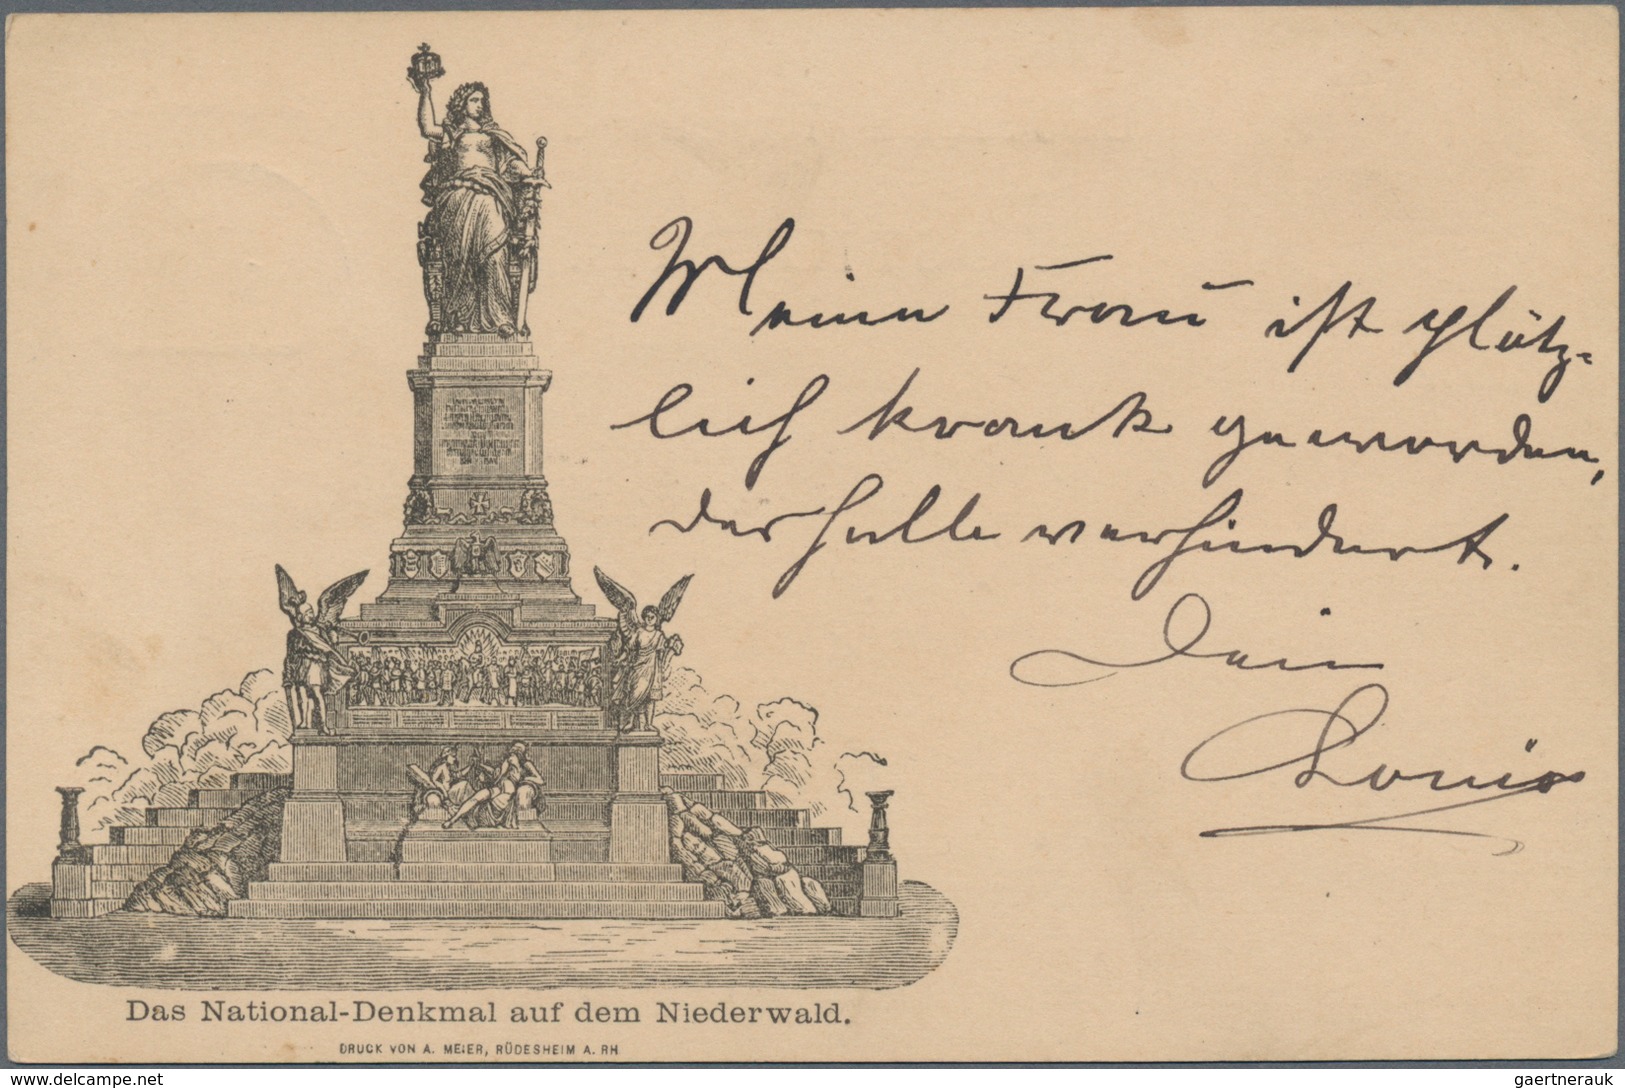 Meine Frau ist plötz-
lich krank geworden,
deshalb verhindert.
Dein
Louis
Das National-Denkmal auf dem Niederwald.
DRUCK VON A. MEIER, RÜDESHEIM A. RH
www.delcampe.net
gaertnerauk